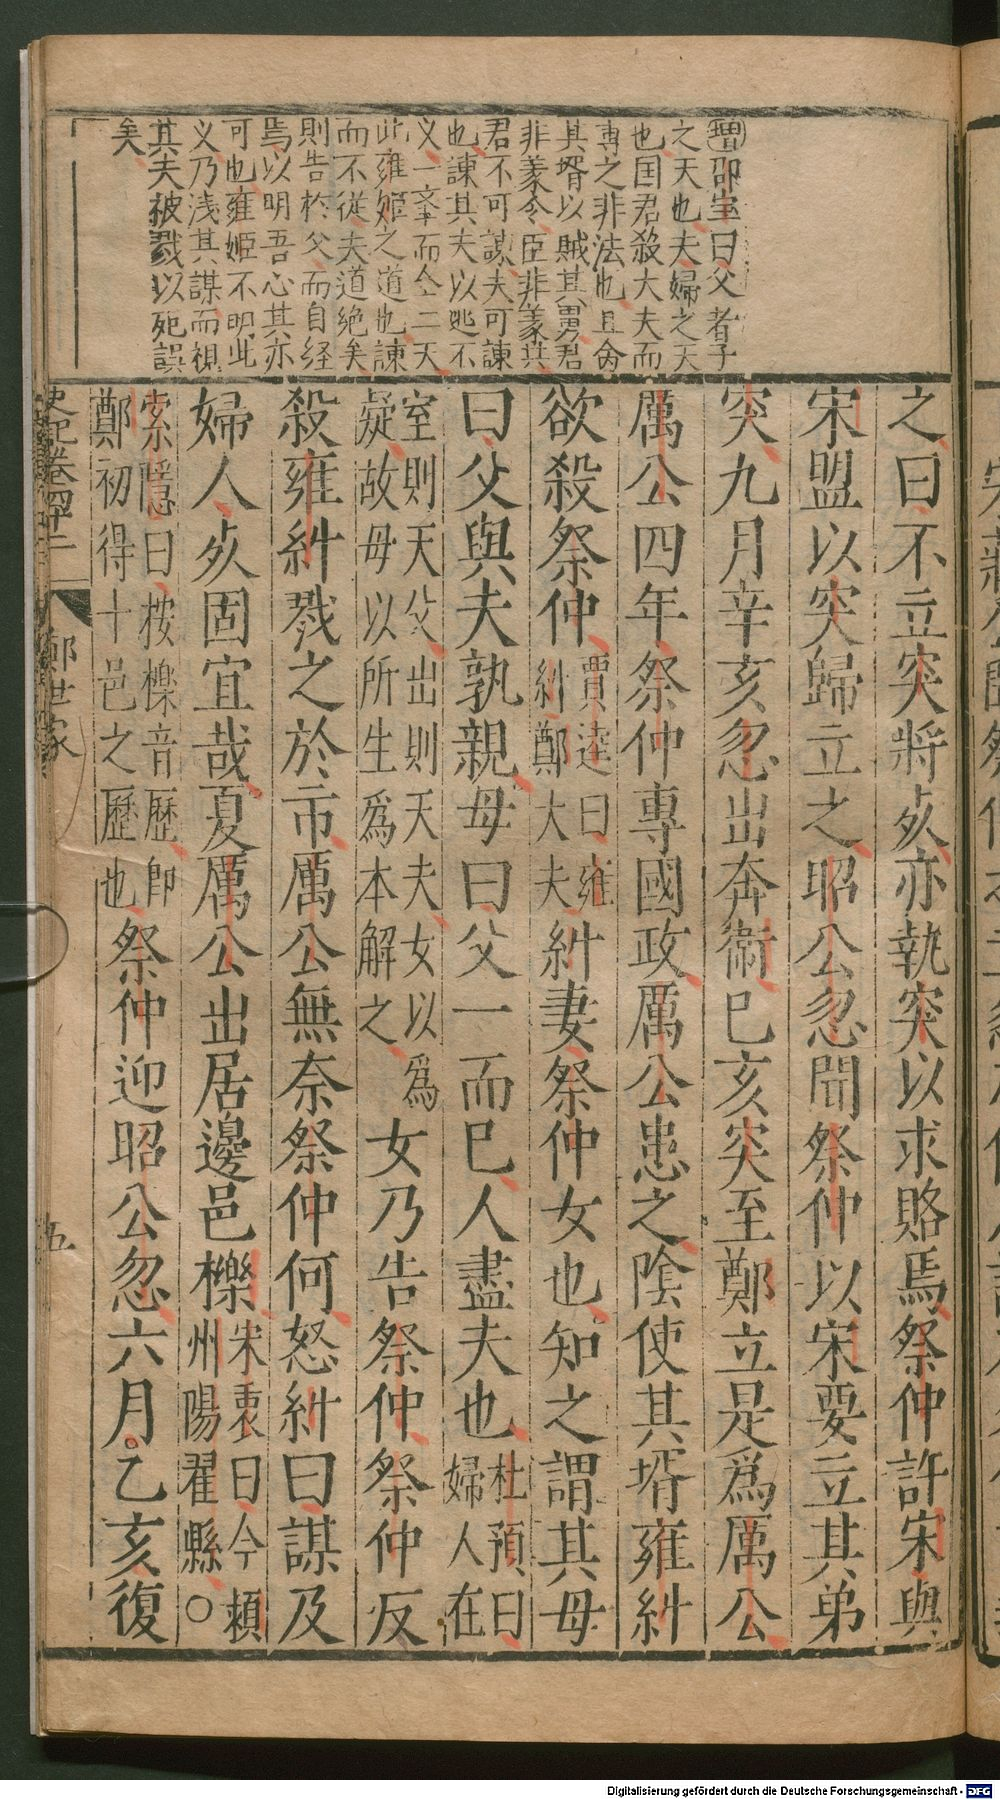 增邵宝曰父者子
之天也夫婦之天
也国君殺大夫而
專之非法也且命
其壻以賊其舅君
非義令臣非義共
君不可謀夫可諫
也諫其夫以逃不
义一峯而仝二天
此雍姬之道也諫
而不從夫道绝矣
則告於父而自经
焉以明吾心其亦
可也雍姬不明此
义乃淺其謀而視
其夫被戮以死誤
矣
之曰不立突將死亦執突以求賂焉祭仲許宋與
宋盟以突歸立之昭公忽聞祭仲以宋要立其弟
突九月辛亥忽出奔衛已亥突至鄭立是爲厲公
厲公四年祭仲專國政厲公患之陰使其壻雍糾
欲殺祭仲賈逵曰雍糾鄭大夫糾妻祭仲女也知之謂其母
曰父與夫孰親母曰父一而已人盡夫也杜預曰婦人在
室則天父出則天夫女以爲疑故母以所生爲本解之女乃告祭仲祭仲反
殺雍糾戮之於市厲公無奈祭仲何怒糾曰謀及
婦人死固宜哉夏厲公出居邊邑櫟宋衷曰今潁州陽翟縣○
索隱曰桉櫟音歷即鄭初得十邑之歷也祭仲迎昭公忽六月乙亥復
史記卷四十二 鄭世家 五
Digitalisierung gefördert durch die Deutsche Forschungsgemeinschaft - DFG